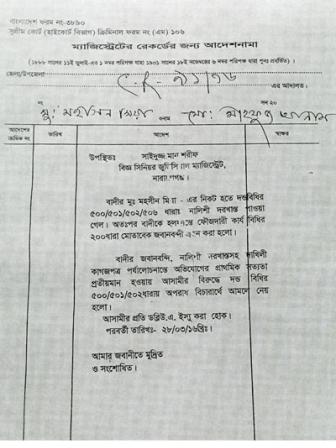 বাংলাদেশ ফরম নং-৩৮৯০
সুপ্রীম কোর্ট (হাইকোর্ট বিভাগ) ক্রিমিনাল ফরম নং (এম) ১০৬
ম্যাজিস্ট্রেটের রেকর্ডের জন্য আদেশনামা
জেলা/উপজেলা
এর আদালত।
নং
সন ২০
মু: মহসিন মিয়া বনাম মো:
আদেশের ক্রমিক নং
তারিখ
আদেশ
স্বাক্ষর
উপস্থিতঃ
বিজ্ঞ সিনিয়র ম্যাজিস্ট্রেট,
বাদীর মুঃ মহসীন মিয়া - এর নিকট হতে দন্ডবিধির
৫০০/৫০১/৫০২/৫০৬ ধারায় নালিশী দরখাস্ত পাওয়া
গেল। অতঃপর বাদীকে ফৌজদারী কার্য বিধির
২০০ধারা মোতাবেক জবানবন্দী করা হলো।
বাদীর জবানবন্দি, নালিশী দরখাস্তসহ দাখিলী
কাগজপত্র পর্যালোচনান্তে অভিযোগের প্রাথমিক সত্যতা
প্রতীয়মান হওয়ায় আসামীর বিরুদ্ধে দন্ড বিধির
৫০০/৫০১/৫০২ধারায় অপরাধ বিচারার্থে আমলে নেয়
হলো।
আসামীর প্রতি ডব্লিউ.এ. ইস্যু করা হোক।
পরবর্তী তারিখঃ- ২৮/০৩/১৬খ্রিঃ।
আমার জবানীতে মুদ্রিত
ও সংশোধিত।